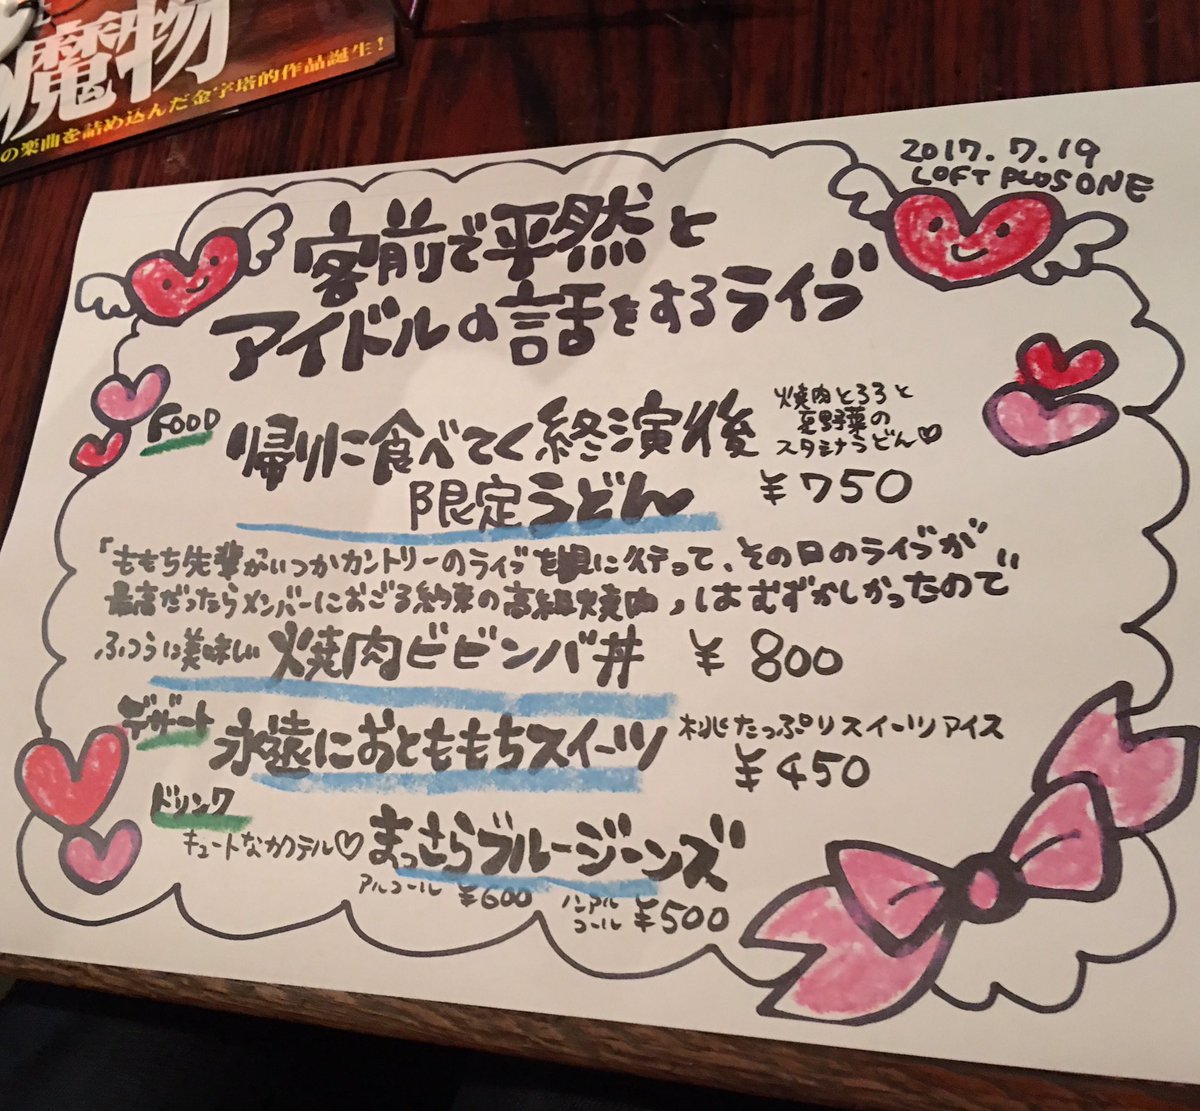 魔物
の楽曲を詰め込んだ金字塔的作品誕生!
2017.7.19
LOFT PLUS ONE
客前で平然と
アイドルの話をするライブ
FOOD
帰りに食べてく終演後
限定うどん
焼肉とろろと
夏野菜の
スタミナうどん♡
¥750
「ももち先輩がいつかカントリーのライブを観に行って、その日のライブが
最高だったらメンバーにおごる約束の高級焼肉」はむずかしかったので
ふつうに美味しい 焼肉ビビンバ丼 ¥800
デザート
永遠におとももちスイーツ
桃たっぷりスイーツアイス
¥450
ドリンク
キュートなカクテル♡ まっさらブルージーンズ
アルコール ¥600 ノンアルコール ¥500